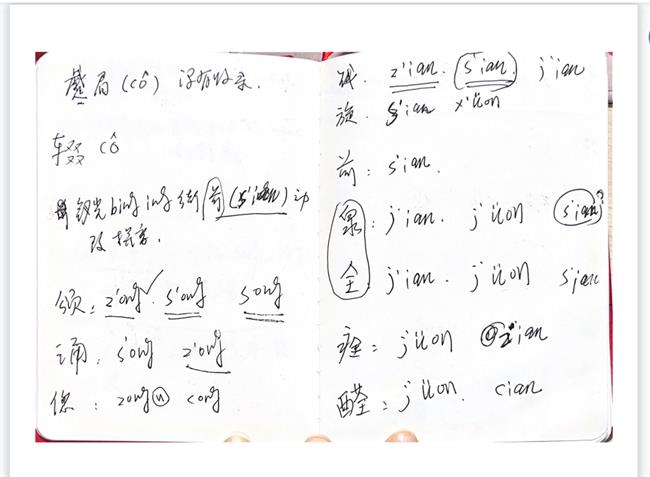 局 (cô) 没有收录.
辍 cô
光 bing ing 街 前 (s'ian) 被探索.
颂: z'ong s'ong song
诵. s'ong z'ong
偬: zong cong
z'ian. (s'ian.) j'ian
旋. s'ian x'üon
前: s'ian.
泉: j'ian. j'üon s'ian?
全: j'ian. j'üon sian
痊: j'üon z'ian
醛: j'üon. cian